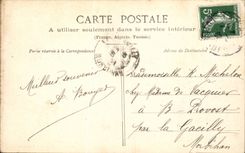 CARTE POSTALE
A utiliser seulement dans le service intérieur
(France, Algérie, Tunisie)
Partie réservée à la Correspondance
Adresse du Destinataire
Meilleur souvenir
A. Bouyer
Mademoiselle H. Michelon
chez Madame de Jacquier
à B. Provost
par la Gacilly
Morbihan